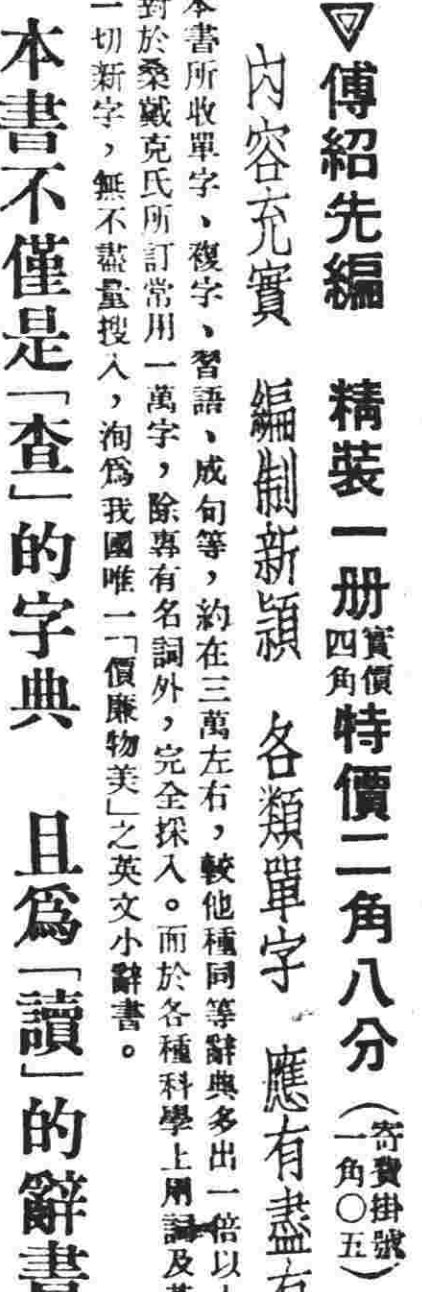 ▽傅紹先編　精裝一册實價四角特價二角八分（寄費掛號一角〇五）
内容充實　編制新穎　各類單字　應有盡有
本書所收單字、複字、習語、成句等，約在三萬左右，較他種同等辭典多出一倍以
對於桑戴克氏所訂常用一萬字，除專有名詞外，完全採入。而於各種科學上用詞及
一切新字，無不盡量搜入，洵爲我國唯一「價廉物美」之英文小辭書。
本書不僅是「查」的字典　且爲「讀」的辭書